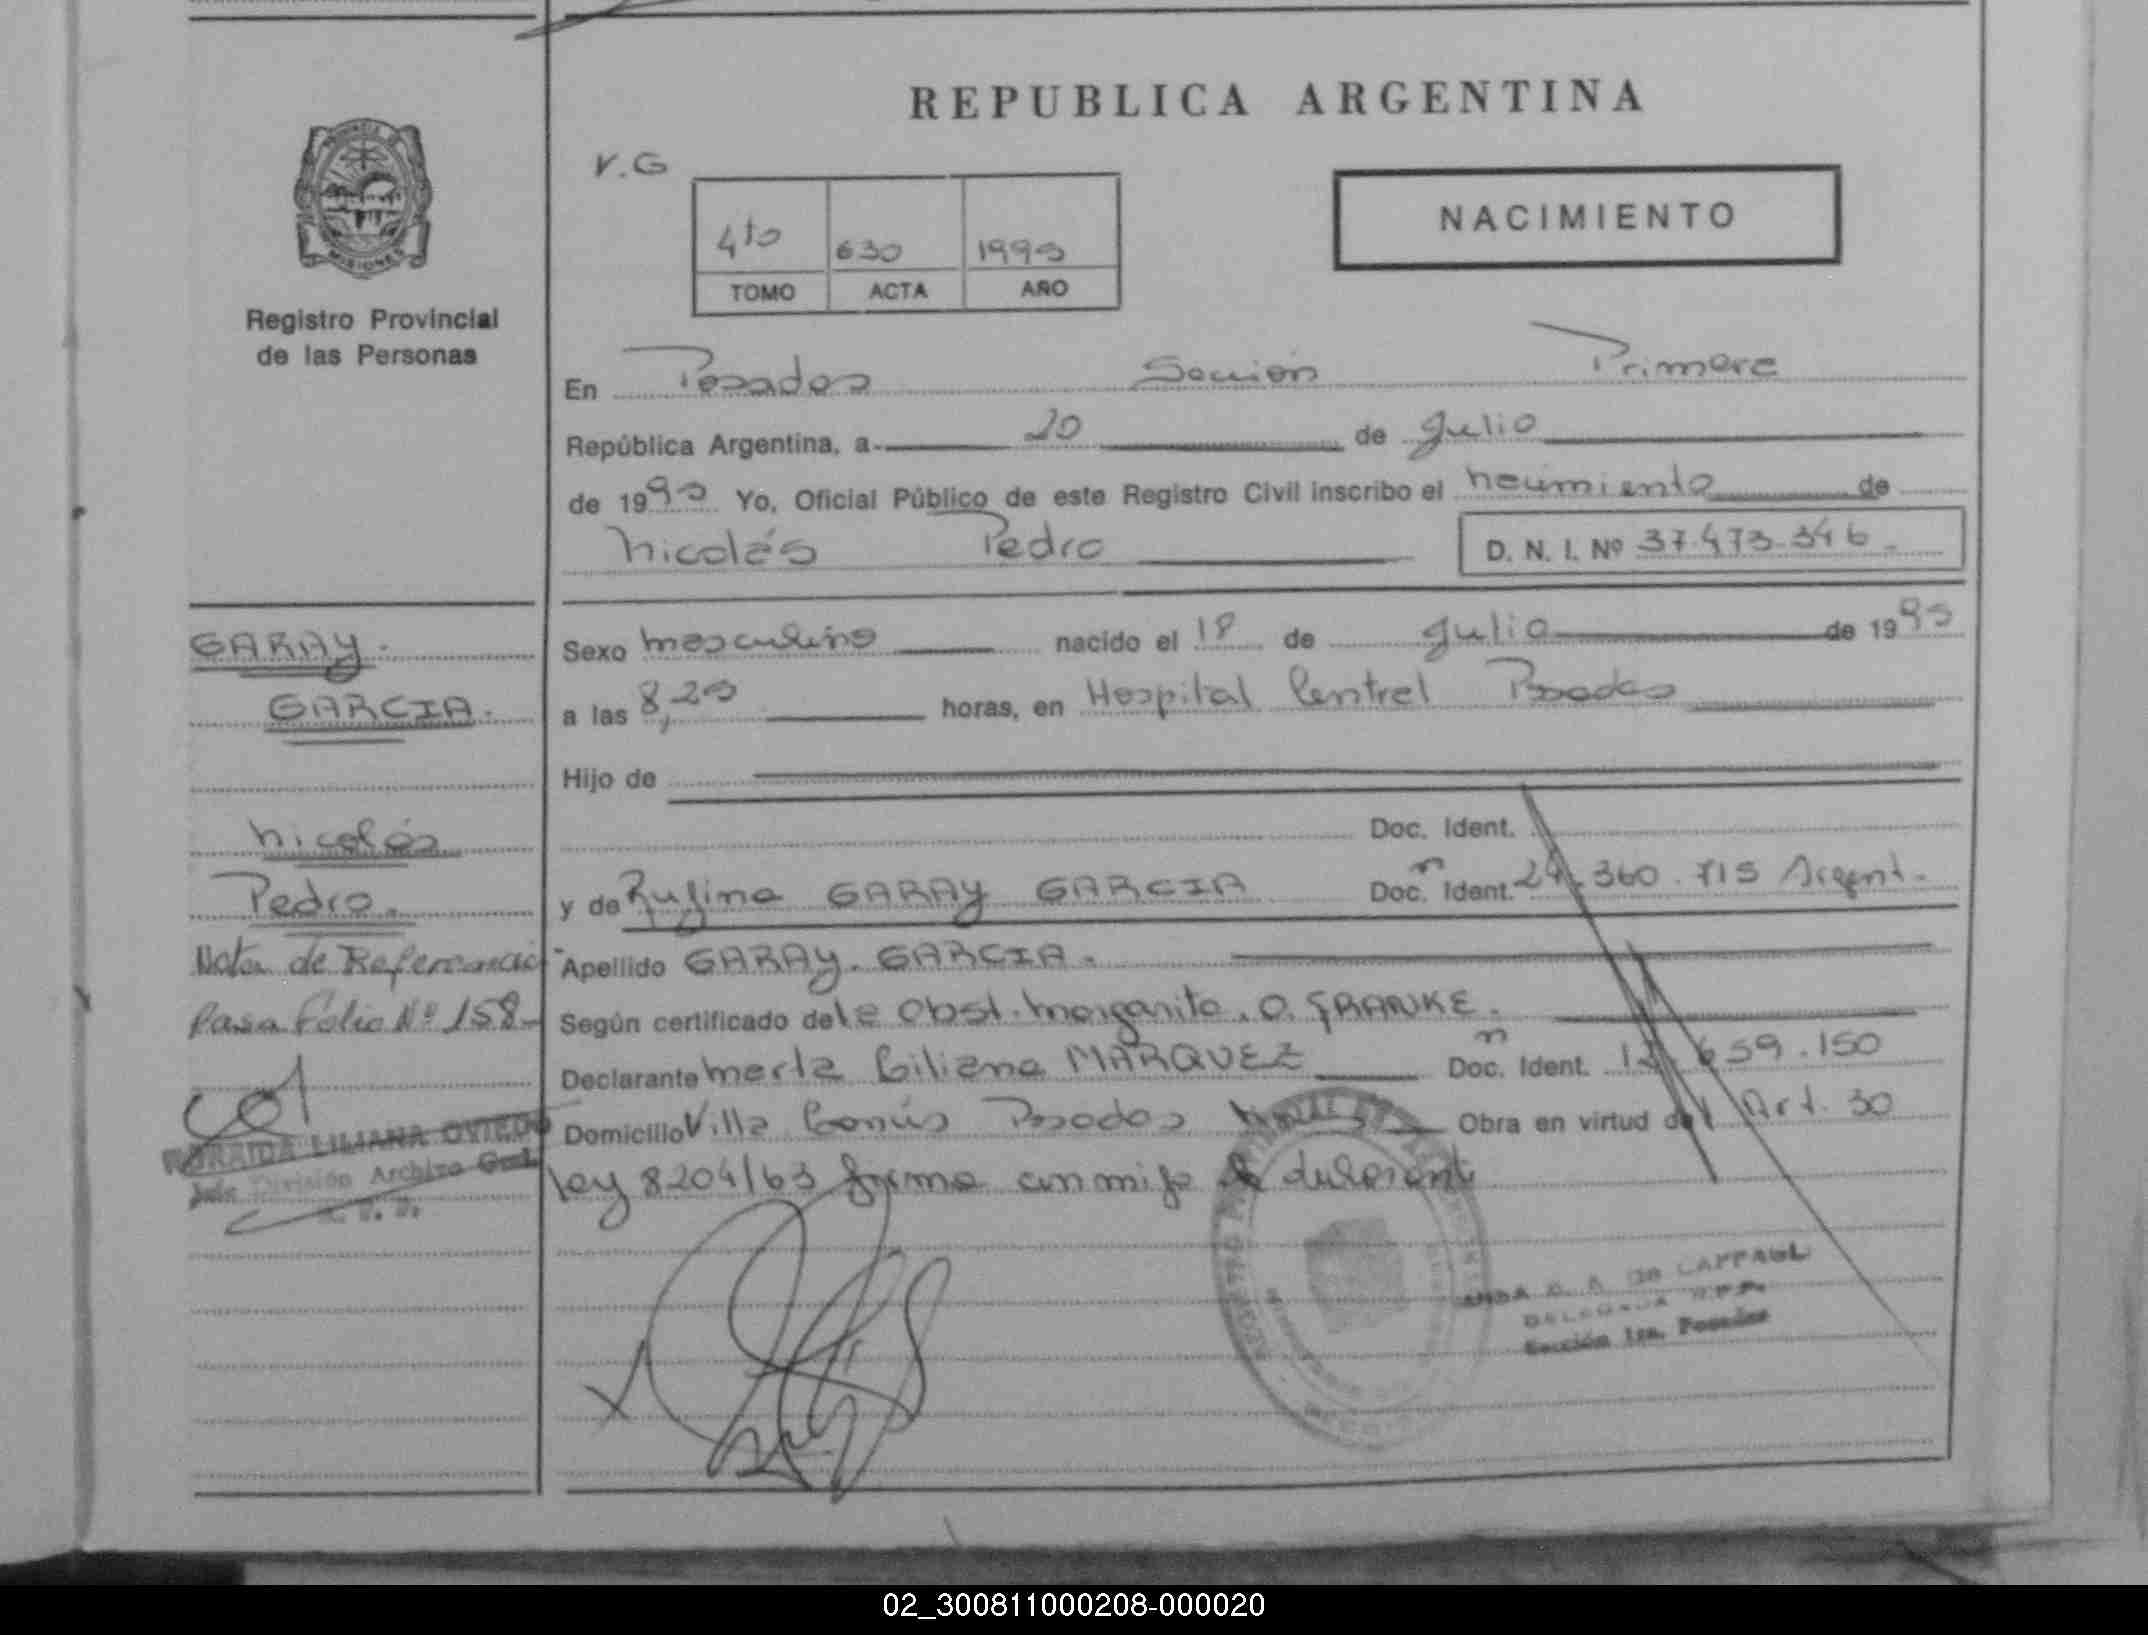 REPUBLICA ARGENTINA
V.G
NACIMIENTO
4to 630 1990
TOMO ACTA AÑO
MISIONES
Registro Provincial
de las Personas
En Posadas Sección Primera
República Argentina, a 20 de Julio
de 1990 Yo, Oficial Público de este Registro Civil inscribo el nacimiento de
Nicolás Pedro D. N. I. Nº 37.473.346.
GARAY.
GARCIA.
Nicolás
Pedro.
Nota de Referencia
Pasa Folio Nº 158
LILIANA OVIEDO
Jefe División Archivo Gral.
Sexo masculino nacido el 18 de Julio de 1990
a las 8,20 horas, en Hospital Central Posadas
Hijo de
Doc. Ident.
y de Rufina GARAY GARCIA Doc. Ident. 24.360.715 Argent.
Apellido GARAY. GARCIA.
Según certificado de la Obst. Margarita. O. FRANKE.
Declarante Marta Liliana MARQUEZ Doc. Ident. 12.659.150
Domicilio Villa Lanús Posadas Obra en virtud del Art. 30
Ley 8204/63 firma conmigo
DELEGADA R.P.P.
Sección 1ra. Posadas
02_300811000208-000020